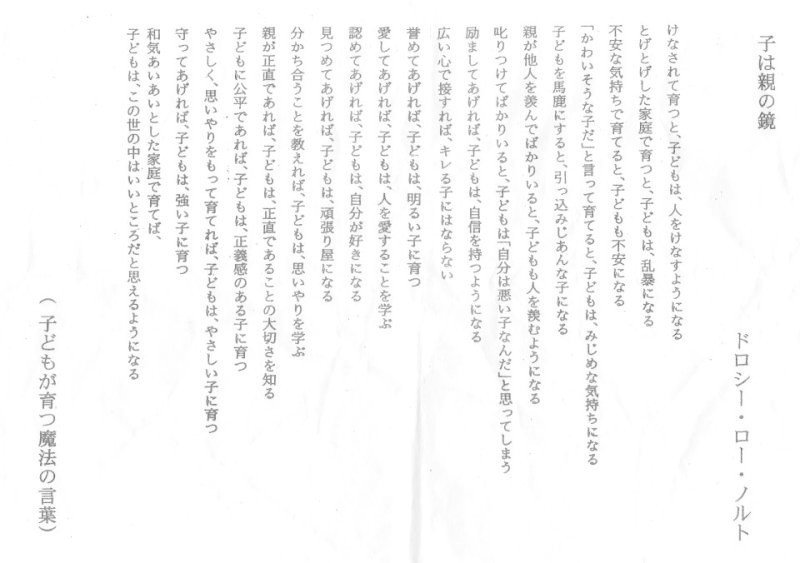 子は親の鏡
ドロシー・ロー・ノルト
けなされて育つと、子どもは、人をけなすようになる
とげとげした家庭で育つと、子どもは、乱暴になる
不安な気持ちで育てると、子どもも不安になる
「かわいそうな子だ」と言って育てると、子どもは、みじめな気持ちになる
子どもを馬鹿にすると、引っ込みじあんな子になる
親が他人を羨んでばかりいると、子どもも人を羨むようになる
叱りつけてばかりいると、子どもは「自分は悪い子なんだ」と思ってしまう
励ましてあげれば、子どもは、自信を持つようになる
広い心で接すれば、キレる子にはならない
誉めてあげれば、子どもは、明るい子に育つ
愛してあげれば、子どもは、人を愛することを学ぶ
認めてあげれば、子どもは、自分が好きになる
見つめてあげれば、子どもは、頑張り屋になる
分かち合うことを教えれば、子どもは、思いやりを学ぶ
親が正直であれば、子どもは、正直であることの大切さを知る
子どもに公平であれば、子どもは、正義感のある子に育つ
やさしく、思いやりをもって育てれば、子どもは、やさしい子に育つ
守ってあげれば、子どもは、強い子に育つ
和気あいあいとした家庭で育てば、
子どもは、この世の中はいいところだと思えるようになる
(子どもが育つ魔法の言葉)